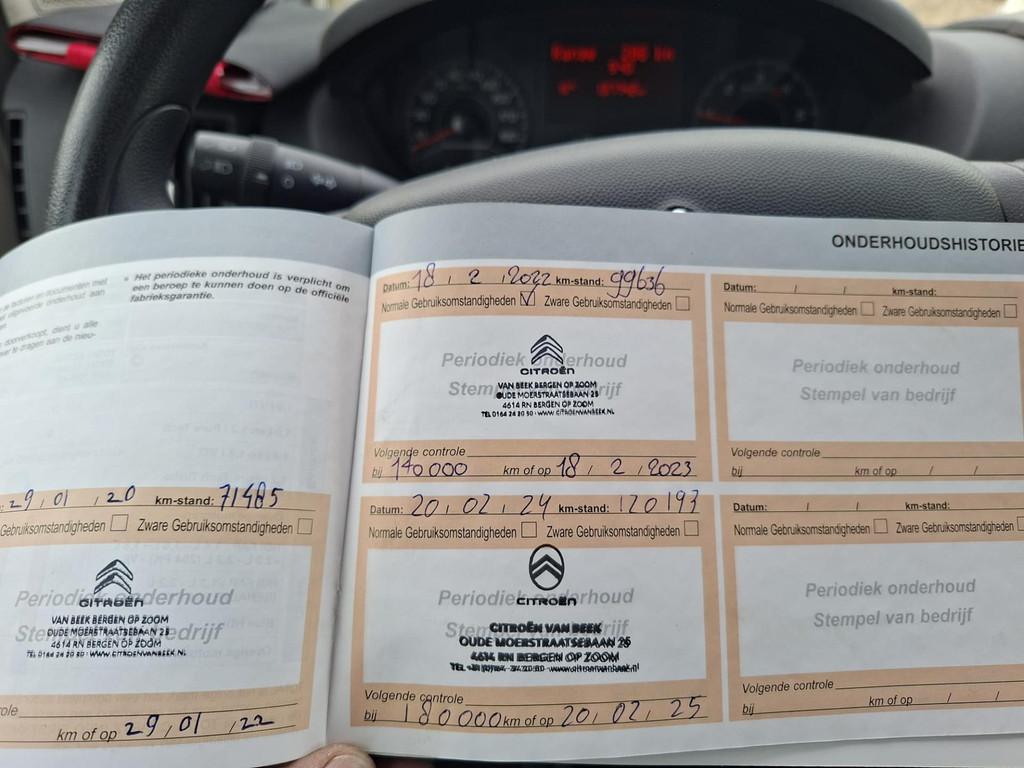 ONDERHOUDSHISTORIE
• Het periodieke onderhoud is verplicht om
een beroep te kunnen doen op de officiële
fabrieksgarantie.
29, 01, 20 km-stand: 71485
Gebruiksomstandigheden Zware Gebruiksomstandigheden
Periodiek onderhoud
Stempel van bedrijf
CITROËN
VAN BEEK BERGEN OP ZOOM
OUDE MOERSTRAATSEBAAN 25
4614 RN BERGEN OP ZOOM
TEL 0164 24 20 50 · WWW.CITROENVANBEEK.NL
km of op 29, 01, 22
Datum: 18, 2, 2022 km-stand: 99636
Normale Gebruiksomstandigheden Zware Gebruiksomstandigheden
Periodiek onderhoud
Stempel van bedrijf
CITROËN
VAN BEEK BERGEN OP ZOOM
OUDE MOERSTRAATSEBAAN 25
4614 RN BERGEN OP ZOOM
TEL 0164 24 20 50 · WWW.CITROENVANBEEK.NL
Volgende controle
bij 140000 km of op 18, 2, 2023
Datum: / / km-stand:
Normale Gebruiksomstandigheden Zware Gebruiksomstandigheden
Periodiek onderhoud
Stempel van bedrijf
Volgende controle
bij km of op / /
Datum: 20, 02, 24 km-stand: 120193
Normale Gebruiksomstandigheden Zware Gebruiksomstandigheden
Periodiek onderhoud
Stempel van bedrijf
CITROËN
CITROËN VAN BEEK
OUDE MOERSTRAATSEBAAN 25
4614 RN BERGEN OP ZOOM
Volgende controle
bij 180000 km of op 20, 02, 25
Datum: / / km-stand:
Normale Gebruiksomstandigheden Zware Gebruiksomstandigheden
Periodiek onderhoud
Stempel van bedrijf
Volgende controle
bij km of op / /